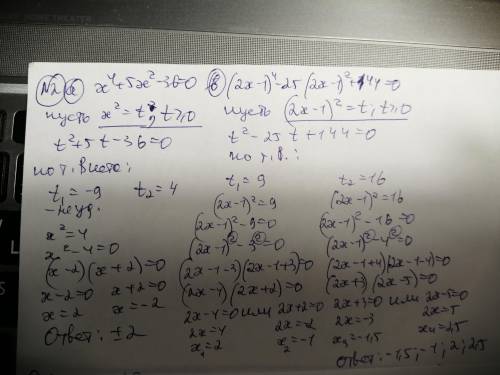 №2 а) x⁴+5x²-36=0
пусть x²=t, t⩾0
t²+5t-36=0
по т. Виета:
t₁=-9 t₂=4
-неуд.
x²=4
x²-4=0
(x-2)(x+2)=0
x-2=0 x+2=0
x=2 x=-2
Ответ: ±2
б) (2x-1)⁴-25(2x-1)²+144=0
пусть (2x-1)²=t, t⩾0
t²-25t+144=0
по т.в.:
t₁=9 t₂=16
(2x-1)²=9 (2x-1)²=16
(2x-1)²-9=0 (2x-1)²-16=0
(2x-1)²-3²=0 (2x-1)²-4²=0
(2x-1-3)(2x-1+3)=0 (2x-1+4)(2x-1-4)=0
(2x-4)(2x+2)=0 (2x+3)(2x-5)=0
2x-4=0 или 2x+2=0 2x+3=0 или 2x-5=0
2x=4 2x=-2 2x=-3 2x=5
x₁=2 x₂=-1 x₃=-1,5 x₄=2,5
Ответ: -1,5; -1; 2; 2,5